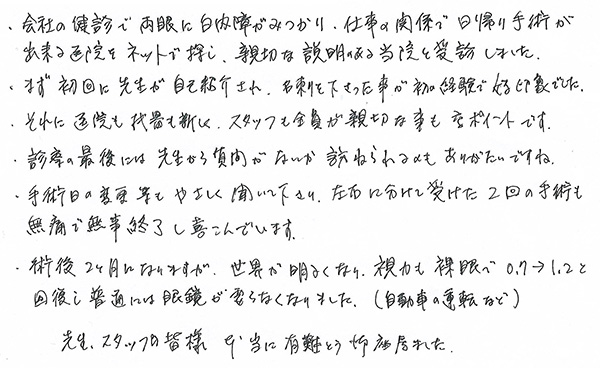 ・会社の健診で両眼に白内障がみつかり、仕事の関係で日帰り手術が
出来る医院をネットで探し、親切な説明のある当院を受診しました。
・まず初回に先生が自己紹介され、名刺を下さった事が初の経験で好印象でした。
・それに医院も機器も新しく、スタッフも全員が親切な事も高ポイントです。
・診察の最後には先生から質問がないか訪ねられるのもありがたいですね。
・手術日の変更等もやさしく聞いて下さり、左右に分けて受けた2回の手術も
無痛で無事終了し喜こんでいます。
・術後2ヶ月になりますが、世界が明るくなり、視力も裸眼で0.7→1.2と
回復し普通には眼鏡が要らなくなりました。(自動車の運転など)
先生、スタッフの皆様 本当に有難とう御座居ました。